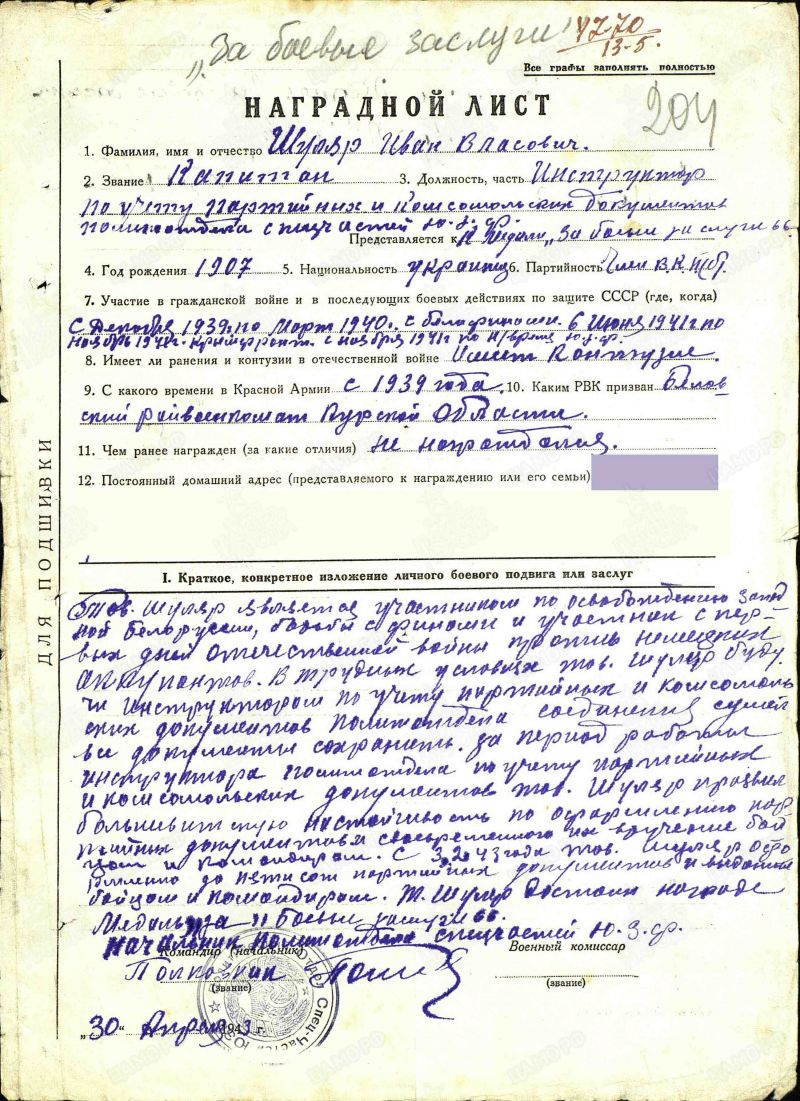 „За боевые заслуги"
17-70
13-5.
Все графы заполнять полностью
204
НАГРАДНОЙ ЛИСТ
1. Фамилия, имя и отчество Шуляр Иван Власович.
2. Звание Капитан 3. Должность, часть Инструктор
по учету партийных и комсомольских документов
политотдела спецчастей Ю.З.Ф.
Представляется к Медали „За боевые заслуги"
4. Год рождения 1907 5. Национальность украинец 6. Партийность Член ВКП(б).
7. Участие в гражданской войне и в последующих боевых действиях по защите СССР (где, когда)
С Декабря 1939г. по Март 1940г. с белофинами. 6 Июня 1941г по
Ноябрь 1941г. Крымфронт. с ноября 1941г по н/время Ю.З.Ф.
8. Имеет ли ранения и контузии в отечественной войне Имеет Контузию.
9. С какого времени в Красной Армии с 1939 года. 10. Каким РВК призван Белов-
ский райвоенкомат Курской Области.
11. Чем ранее награжден (за какие отличия) не награждался.
12. Постоянный домашний адрес (представляемого к награждению или его семьи)
ДЛЯ ПОДШИВКИ
I. Краткое, конкретное изложение личного боевого подвига или заслуг
Тов. Шуляр является участником по освобождению Запад
ной Белоруссии, борьбы с финами и участник с пер-
вых дней отечественной войны против немецких
оккупантов. В трудных условиях тов. Шуляр буду-
чи инструктором по учету партийных и комсомоль
ских документов Политотдела соединения сумел
все документы сохранить. За период работы
инструктора политотдела по учету партийных
и комсомольских документов тов. Шуляр проявил
большевитскую настойчивость по оформлению пар-
тийных документов своевременного их вручение бой
цам и командирам. С 3.2.43 года тов. Шуляр офо
рмлено до пятисот партийных документов и выдано
бойцам и командирам. Т. Шуляр достоин награде
Медалью за „Боевые заслуги".
Начальник политотдела спецчастей Ю.З.Ф.
Командир (начальник) Военный комиссар
Полковник
(звание) (звание)
„30" Апреля 1943 г.